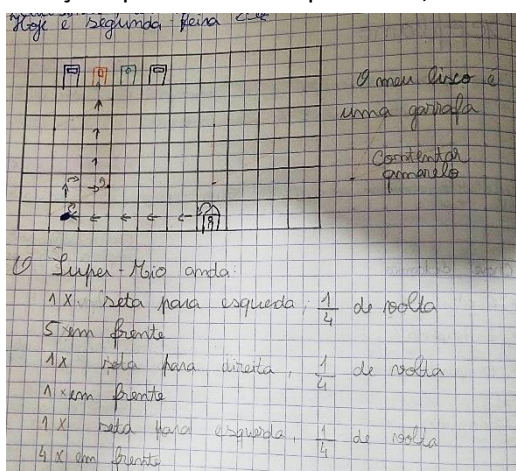 Hoje é segunda-feira
O meu lixo é
uma garrafa
Contentor
amarelo
O Super-Mio anda:
1x seta para esquerda, 1/4 de volta
5 x em frente
1x seta para direita, 1/4 de volta
1 x em frente
1x seta para esquerda, 1/4 de volta
4 x em frente